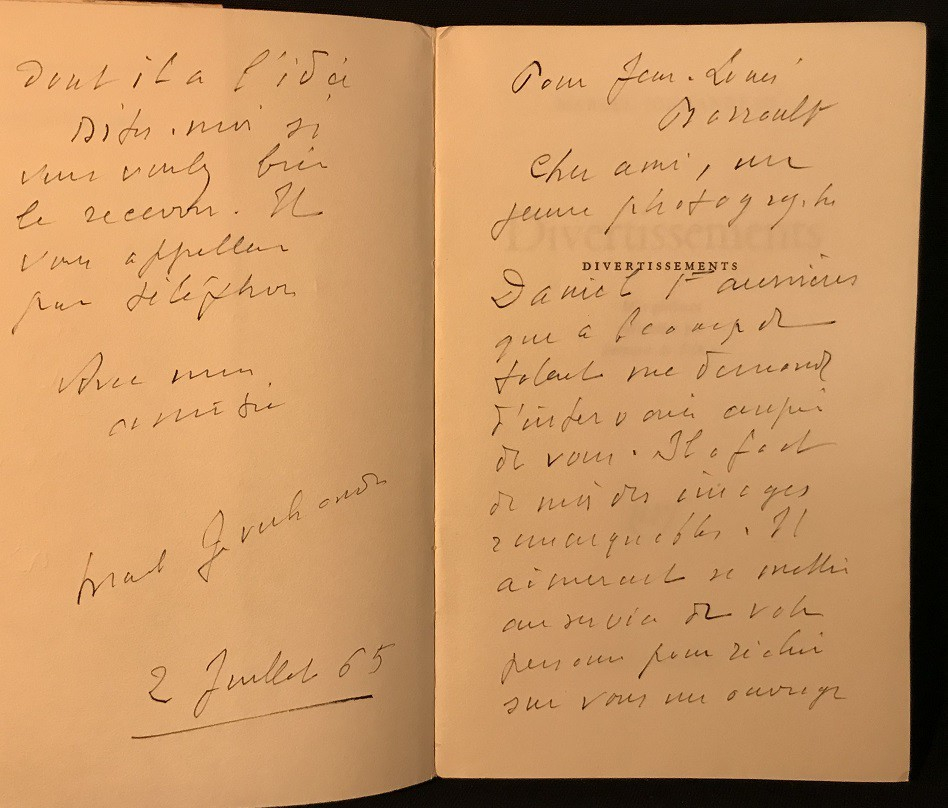 Pour Jean-Louis
Barrault
Cher ami, un
jeune photographe
Divertissements
DIVERTISSEMENTS
Daniel
qui a beaucoup de
talent me demande
d'intervenir auprès
de vous. Il a fait
de moi des images
remarquables. Il
aimerait se mettre
au service de votre
personne pour réaliser
sur vous un ouvrage
Dont il a l'idée
Dites-moi si
vous voulez bien
le recevoir. Il
vous appellera
par téléphone
Avec mon
amitié
Marcel Jouhandeau
2 Juillet 65